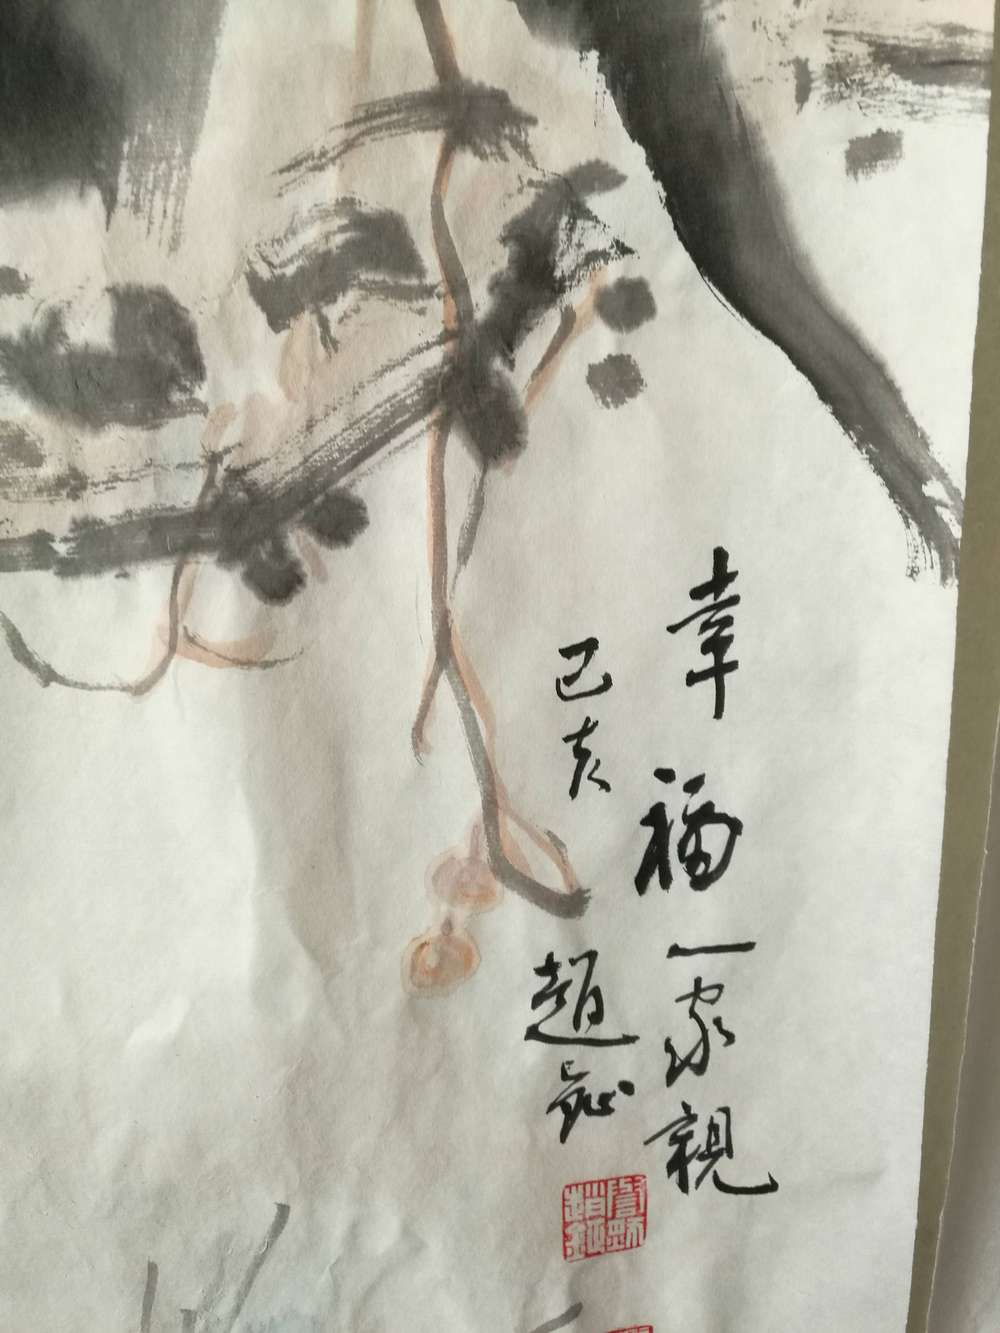 幸福一家親
己亥
趙